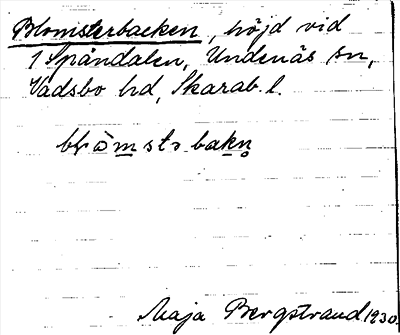 Blomsterbacken, höjd vid
1 Spåndalen, Undenäs sn,
Vadsbo hd, Skarab. l.
blòmstə bakn̥
Maja Bergstrand 1930.